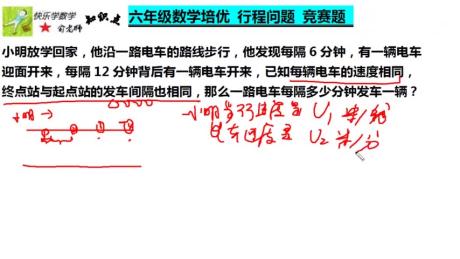 快乐学数学 俞老师 知识点 六年级数学培优 行程问题 竞赛题
小明放学回家，他沿一路电车的路线步行，他发现每隔6分钟，有一辆电车
迎面开来，每隔12分钟背后有一辆电车开来，已知每辆电车的速度相同，
终点站与起点站的发车间隔也相同，那么一路电车每隔多少分钟发车一辆？
小明
小明步行速度是 U₁ 米/分
电车速度是 U₂ 米/分
① ②